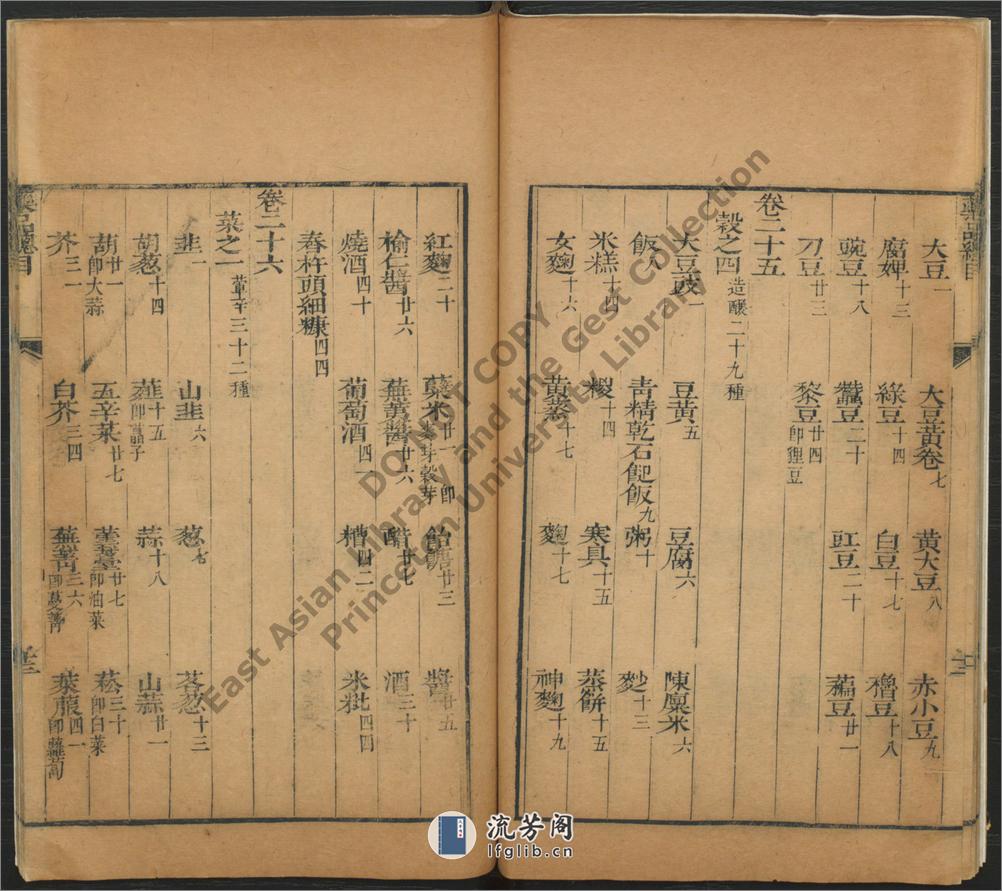 藥品總目
大豆一 大豆黃卷七 黃大豆八 赤小豆九
腐婢十三 綠豆十四 白豆十七 穭豆十八
豌豆十八 蠶豆二十 豇豆二十 藊豆廿一
刀豆廿三 黎豆廿四即貍豆
卷二十五
穀之四造釀二十九種
大豆豉一 豆黃五 豆腐六 陳廩米六
飯八 青精乾石䭀飯九 粥十 麨十三
米糕十四 糉十四 寒具十五 蒸餅十五
女麴十六 黃蒸十七 麴十七 神麴十九
紅麴二十 糵米廿一即麥芽穀芽 飴餹廿三 醬廿五
榆仁醬廿六 蕪荑醬廿六 醋廿七 酒三十
燒酒四十 葡萄酒四一 糟四二 米粃四四
舂杵頭細糠四四
卷二十六
菜之一葷辛三十二種
韭一 山韭六 葱七 茖葱十三
胡葱十四 薤十五即藠子 蒜十八 山蒜廿一
葫廿一即大蒜 五辛菜廿七 蕓薹廿七即油菜 菘三十即白菜
芥三一 白芥三四 蕪菁三六即蔓菁 萊菔四一即蘿蔔
藥品總目
DO NOT COPY
East Asian Library and the Gest Collection
Princeton University Library
流芳阁
lfglib.cn